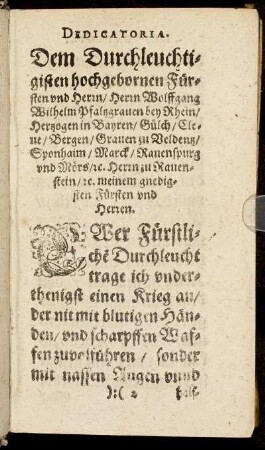 DEDICATORIA.
Dem Durchleuchti-
gisten hochgebornen Für-
sten vnd Herrn/ Herrn Wolffgang
Wilhelm Pfaltzgrauen bey Rhein/
Hertzogen in Bayren/ Gülch/ Cle-
ue/ Bergen/ Grauen zu Veldentz/
Sponhaim/ Marck/ Rauenspurg
vnd Mörs/ꝛc. Herrn zu Rauen-
stein/ꝛc. meinem gnedig-
sten Fürsten vnd
Herren.
EWer Fürstli-
chē Durchleucht
trage ich vnder-
thenigst einen Krieg an/
der nit mit blutigen Hän-
den/ vnd scharpffen Waf-
fen zuvolführen/ sonder
mit nassen Augen vnnd
):( 2 heis-